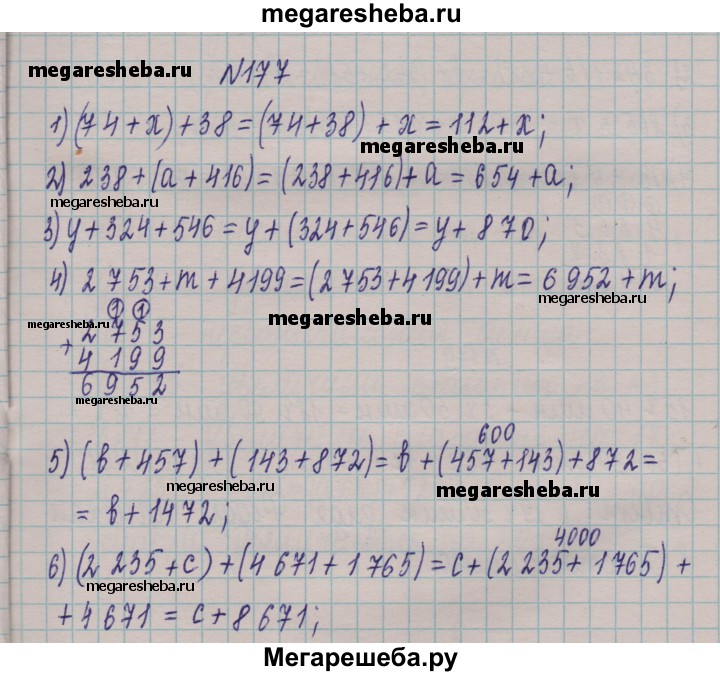 megaresheba.ru
megaresheba.ru
№177
1) (74+x)+38=(74+38)+x=112+x;
megaresheba.ru
2) 238+(a+416)=(238+416)+a=654+a;
megaresheba.ru
3) y+324+546=y+(324+546)=y+870;
4) 2 753+m+4199=(2 753+4 199)+m=6 952+m;
megaresheba.ru
1 1
megaresheba.ru
megaresheba.ru
2 7 5 3
+
4 1 9 9
6 9 5 2
megaresheba.ru
600
5) (b+457)+(143+872)=b+(457+143)+872=
megaresheba.ru
megaresheba.ru
=b+1472;
4000
6) (2 235+c)+(4 671+1 765)=c+(2 235+1 765)+
megaresheba.ru
+4 671=c+8 671;
Мегарешеба.ру